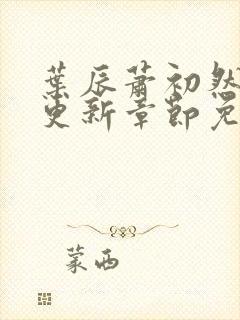 葉辰蕭初然
更新章節免
蒙西